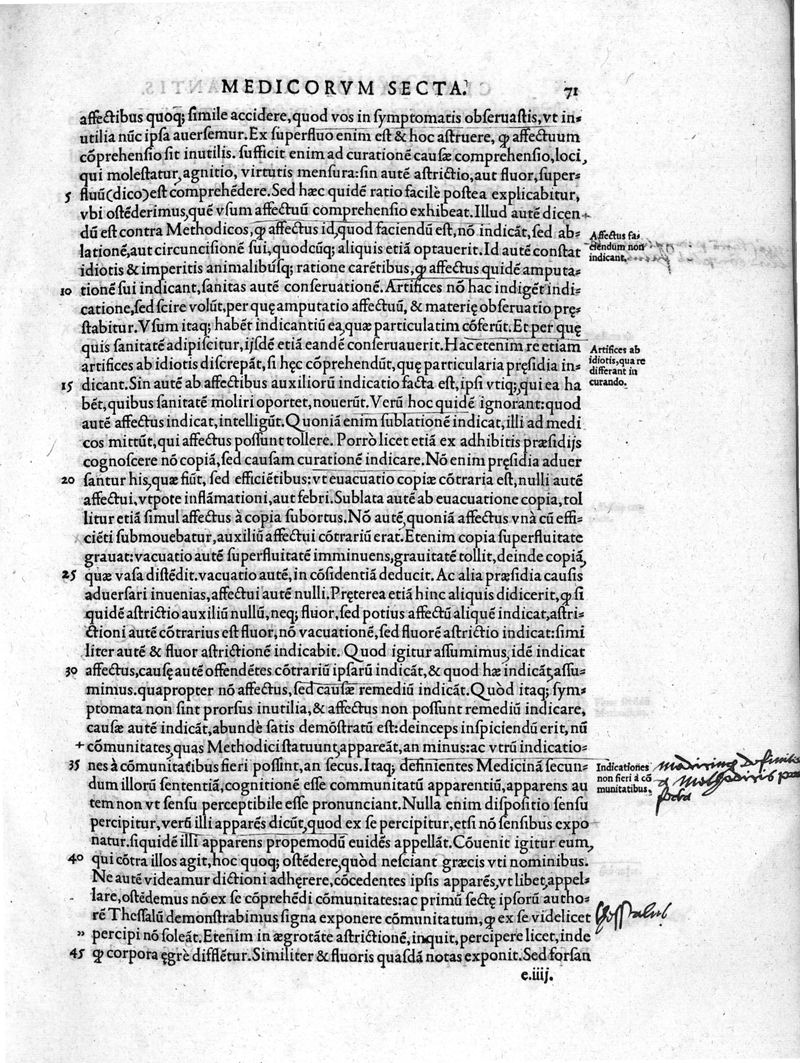 MEDICORVM SECTA. 71
affectibus quoq; simile accidere, quod vos in symptomatis obseruastis, vt in-
utilia nūc ipsa auersemur. Ex superfluo enim est & hoc astruere, ꝙ affectuum
cōprehensio sit inutilis. sufficit enim ad curationē causæ comprehensio, loci,
qui molestatur, agnitio, virtutis mensura: sin autē astrictio, aut fluor, super-
5 fluū (dico) est comprehēdere. Sed hæc quidē ratio facilè postea explicabitur,
vbi ostēderimus, quē vsum affectuū comprehensio exhibeat. Illud autē dicen
dū est contra Methodicos, ꝙ affectus id, quod faciendū est, nō indicāt, sed ab-
lationē, aut circuncisionē sui, quodcūq; aliquis etiā optauerit. Id autē constat
idiotis & imperitis animalibúsq; ratione carētibus, ꝙ affectus quidē amputa-
10 tionē sui indicant, sanitas autē conseruationē. Artifices nō hac indigēt indi-
catione, sed scire volūt, per quę amputatio affectuū, & materię obseruatio prę-
stabitur. Vsum itaq; habēt indicantiū ea, quæ particulatim cōferūt. Et per quę
quis sanitatē adipiscitur, ijsdē etiā eandē conseruauerit. Hac etenim re etiam
artifices ab idiotis discrepāt, si hęc cōprehendūt, quę particularia pręsidia in-
15 dicant. Sin autē ab affectibus auxiliorū indicatio facta est, ipsi vtiq;, qui ea ha
bēt, quibus sanitatē moliri oportet, nouerūt. Verū hoc quidē ignorant: quod
autē affectus indicat, intelligūt. Quoniā enim sublationē indicat, illi ad medi
cos mittūt, qui affectus possunt tollere. Porrò licet etiā ex adhibitis præsidijs
cognoscere nō copiā, sed causam curationē indicare. Nō enim pręsidia aduer
20 santur his, quæ fiūt, sed efficiētibus: vt euacuatio copiæ cōtraria est, nulli autē
affectui, vtpote inflāmationi, aut febri. Sublata autē ab euacuatione copia, tol
litur etiā simul affectus à copia subortus. Nō autē, quoniā affectus vnà cū effi-
ciēti submouebatur, auxiliū affectui cōtrariū erat. Etenim copia superfluitate
grauat: vacuatio autē superfluitatē imminuens, grauitatē tollit, deinde copiā,
25 quæ vasa distēdit. vacuatio autē, in cōsidentiā deducit. Ac alia præsidia causis
aduersari inuenias, affectui autē nulli. Pręterea etiā hinc aliquis didicerit, ꝙ si
quidē astrictio auxiliū nullū, neq; fluor, sed potius affectū aliquē indicat, astri-
ctioni autē cōtrarius est fluor, nō vacuationē, sed fluorē astrictio indicat: simi
liter autē & fluor astrictionē indicabit. Quod igitur assumimus, idē indicat
30 affectus, causę autē offendētes cōtrariū ipsarū indicāt, & quod hæ indicāt, assu-
minus. quapropter nō affectus, sed causæ remediū indicāt. Quòd itaq; sym-
ptomata non sint prorsus inutilia, & affectus non possunt remediū indicare,
causæ autē indicāt, abundè satis demōstratū est: deinceps inspiciendū erit, nū
+ cōmunitates, quas Methodici statuunt, appareāt, an minus: ac vtrū indicatio-
35 nes à cōmunitatibus fieri possint, an secus. Itaq; definientes Medicinā secun-
dum illorū sententiā, cognitionē esse communitatū apparentiū, apparens au
tem non vt sensu perceptibile esse pronunciant. Nulla enim dispositio sensu
percipitur, verū illi apparēs dicūt, quod ex se percipitur, etsi nō sensibus expo
natur. siquidē illi apparens propemodū euidēs appellāt. Cōuenit igitur eum,
40 qui cōtra illos agit, hoc quoq; ostēdere, quòd nesciant græcis vti nominibus.
Ne autē videamur dictioni adhęrere, cōcedentes ipsis apparēs, vt libet, appel-
lare, ostēdemus nō ex se cōprehēdi cōmunitates: ac primū sectę ipsorū autho-
rē Thessalū demonstrabimus signa exponere cōmunitatum, ꝙ ex se videlicet
" percipi nō soleāt. Etenim in ægrotāte astrictionē, inquit, percipere licet, inde
45 ꝙ corpora ęgrè difflētur. Similiter & fluoris quasdā notas exponit. Sed forsan
e.iiij.
Affectus fa-
ciendum non
indicant.
Artifices ab
idiotis, qua re
differant in
curando.
Indicationes
non fieri à cō
munitatibus.
Thessalus